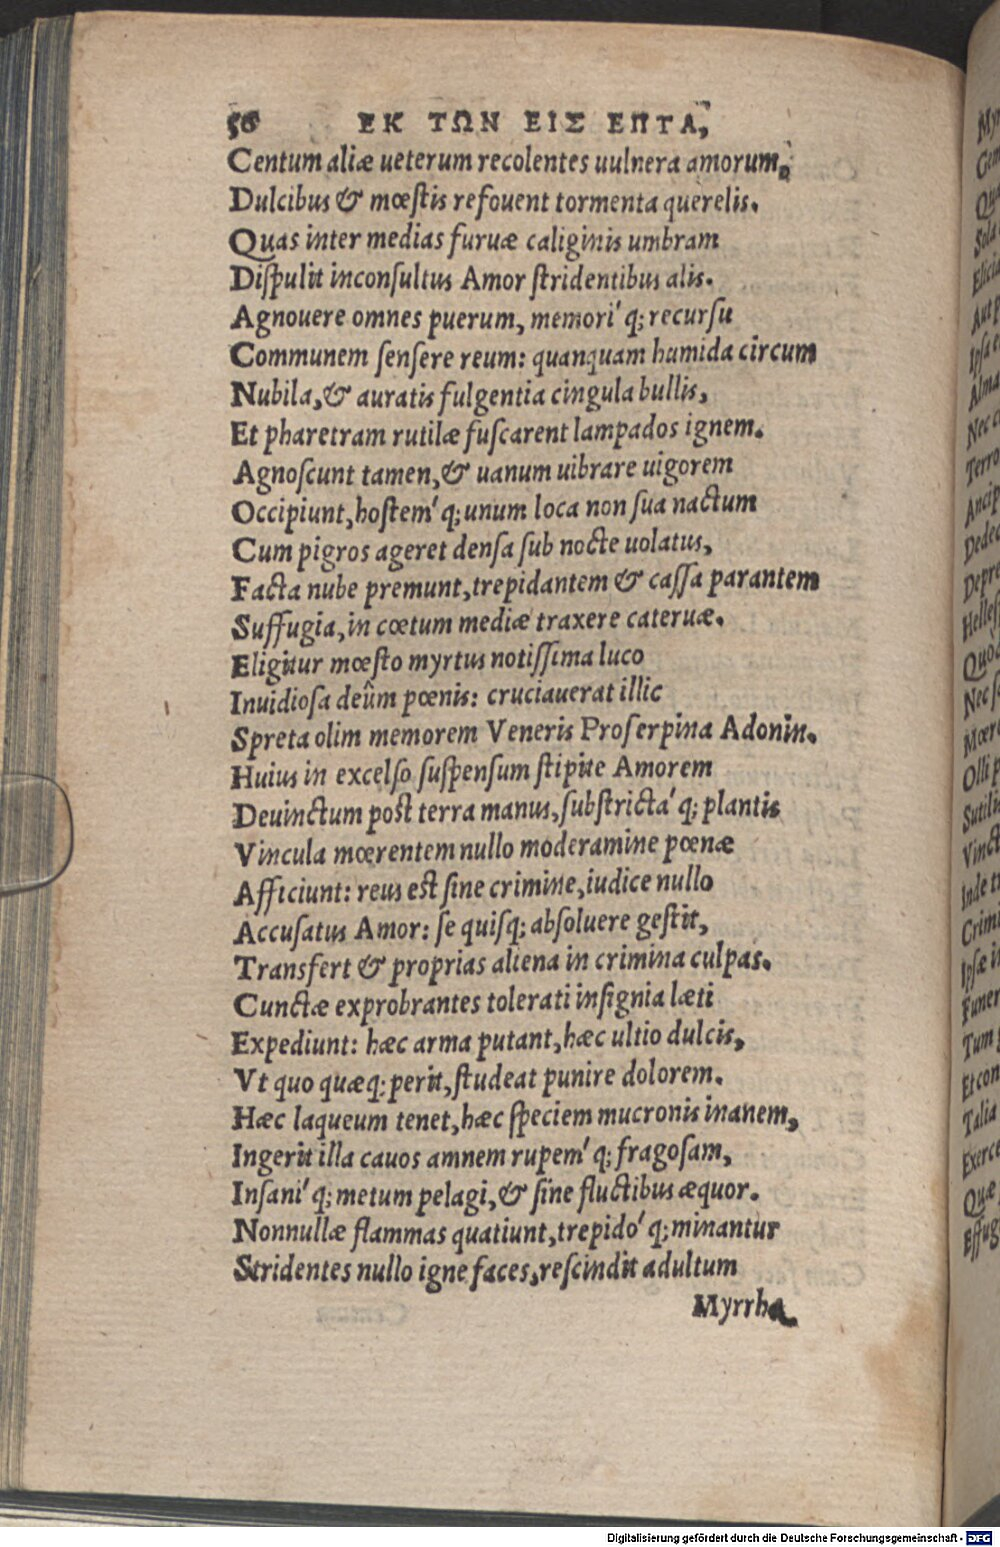 56 ΕΚ ΤΩΝ ΕΙΣ ΕΠΤΑ,
Centum aliæ ueterum recolentes uulnera amorum,
Dulcibus & mœstis refouent tormenta querelis.
Quas inter medias furuæ caliginis umbram
Dispulit inconsultus Amor stridentibus alis.
Agnouere omnes puerum, memori' q; recursu
Communem sensere reum: quanquam humida circum
Nubila, & auratis fulgentia cingula bullis,
Et pharetram rutilæ fuscarent lampados ignem.
Agnoscunt tamen, & uanum uibrare uigorem
Occipiunt, hostem' q; unum loca non sua nactum
Cum pigros ageret densa sub nocte uolatus,
Facta nube premunt, trepidantem & cassa parantem
Suffugia, in cœtum mediæ traxere cateruæ.
Eligitur mœsto myrtus notissima luco
Inuidiosa deûm pœnis: cruciauerat illic
Spreta olim memorem Veneris Proserpina Adonin.
Huius in excelso suspensum stipite Amorem
Deuinctum post terra manus, substricta' q; plantis
Vincula mœrentem nullo moderamine pœnæ
Afficiunt: reus est sine crimine, iudice nullo
Accusatus Amor: se quisq; absoluere gestit,
Transfert & proprias aliena in crimina culpas.
Cunctæ exprobrantes tolerati insignia læti
Expediunt: hæc arma putant, hæc ultio dulcis,
Vt quo quæq; perit, studeat punire dolorem.
Hæc laqueum tenet, hæc speciem mucronis inanem,
Ingerit illa cauos amnem rupem' q; fragosam,
Insani' q; metum pelagi, & sine fluctibus æquor.
Nonnullæ flammas quatiunt, trepido' q; minantur
Stridentes nullo igne faces, rescindit adultum
Myrrha
Digitalisierung gefördert durch die Deutsche Forschungsgemeinschaft - DFG